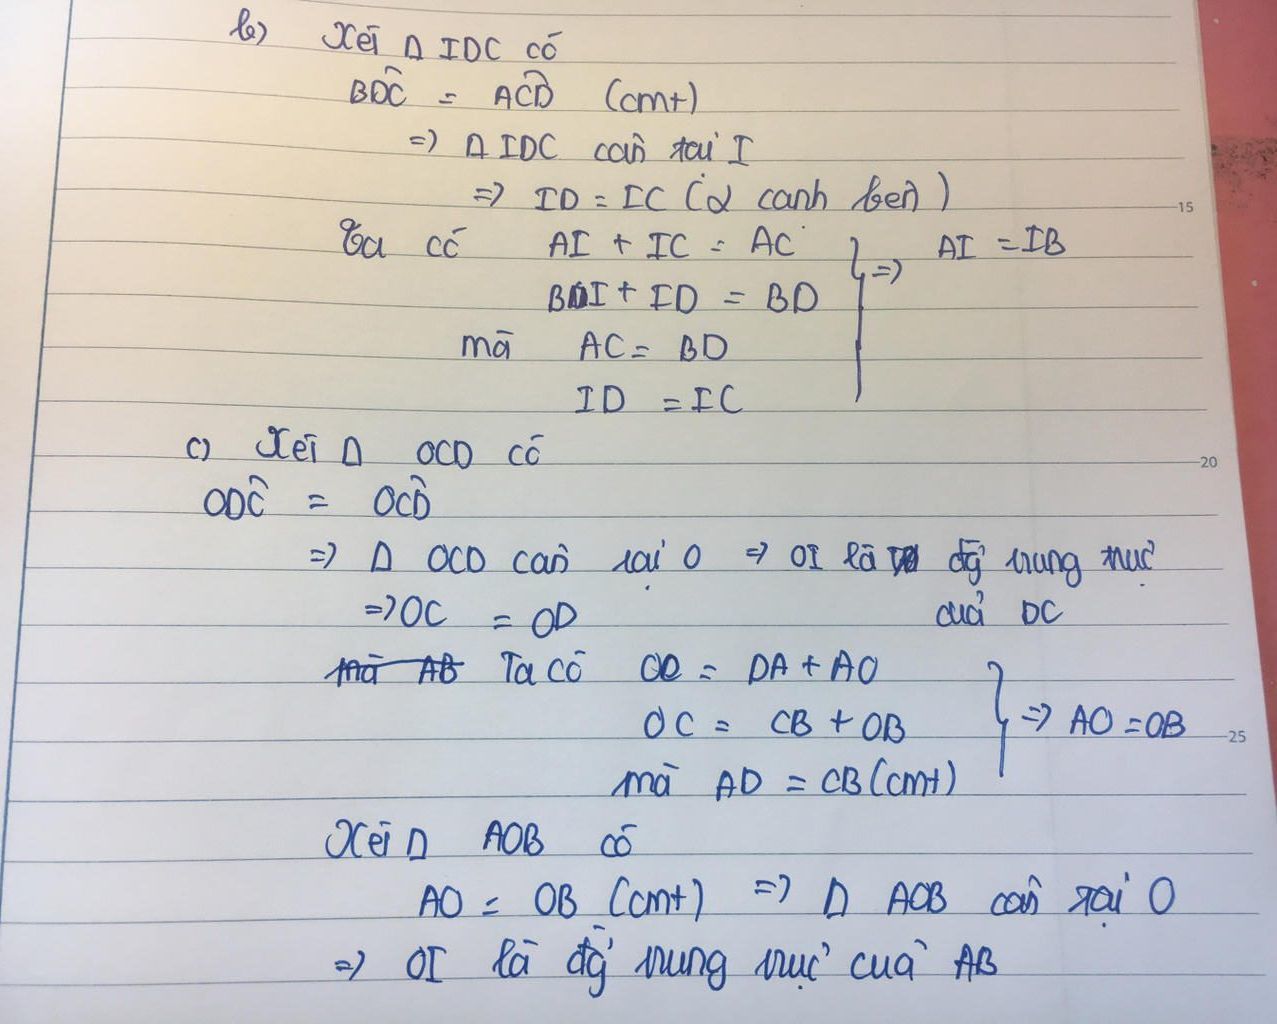 b) Xét Δ IDC có
BDC^ = ACD^ (cmt)
=> Δ IDC cân tại I
=> ID = IC (2 cạnh bên)
15
Ta có AI + IC = AC
BI + ID = BD
=> AI = IB
mà AC = BD
ID = IC
c) Xét Δ OCD có
20
ODC^ = OCD^
=> Δ OCD cân tại O => OI là đg trung trực
của DC
=> OC = OD
mà AB Ta có OD = DA + AO
OC = CB + OB
=> AO = OB
25
mà AD = CB (cmt)
Xét Δ AOB có
AO = OB (cmt) => Δ AOB cân tại O
=> OI là đg trung trực của AB